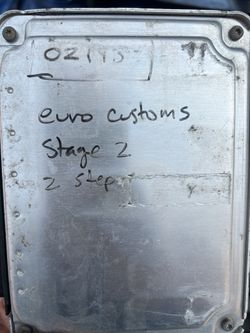 euro customs
Stage 2
2 step